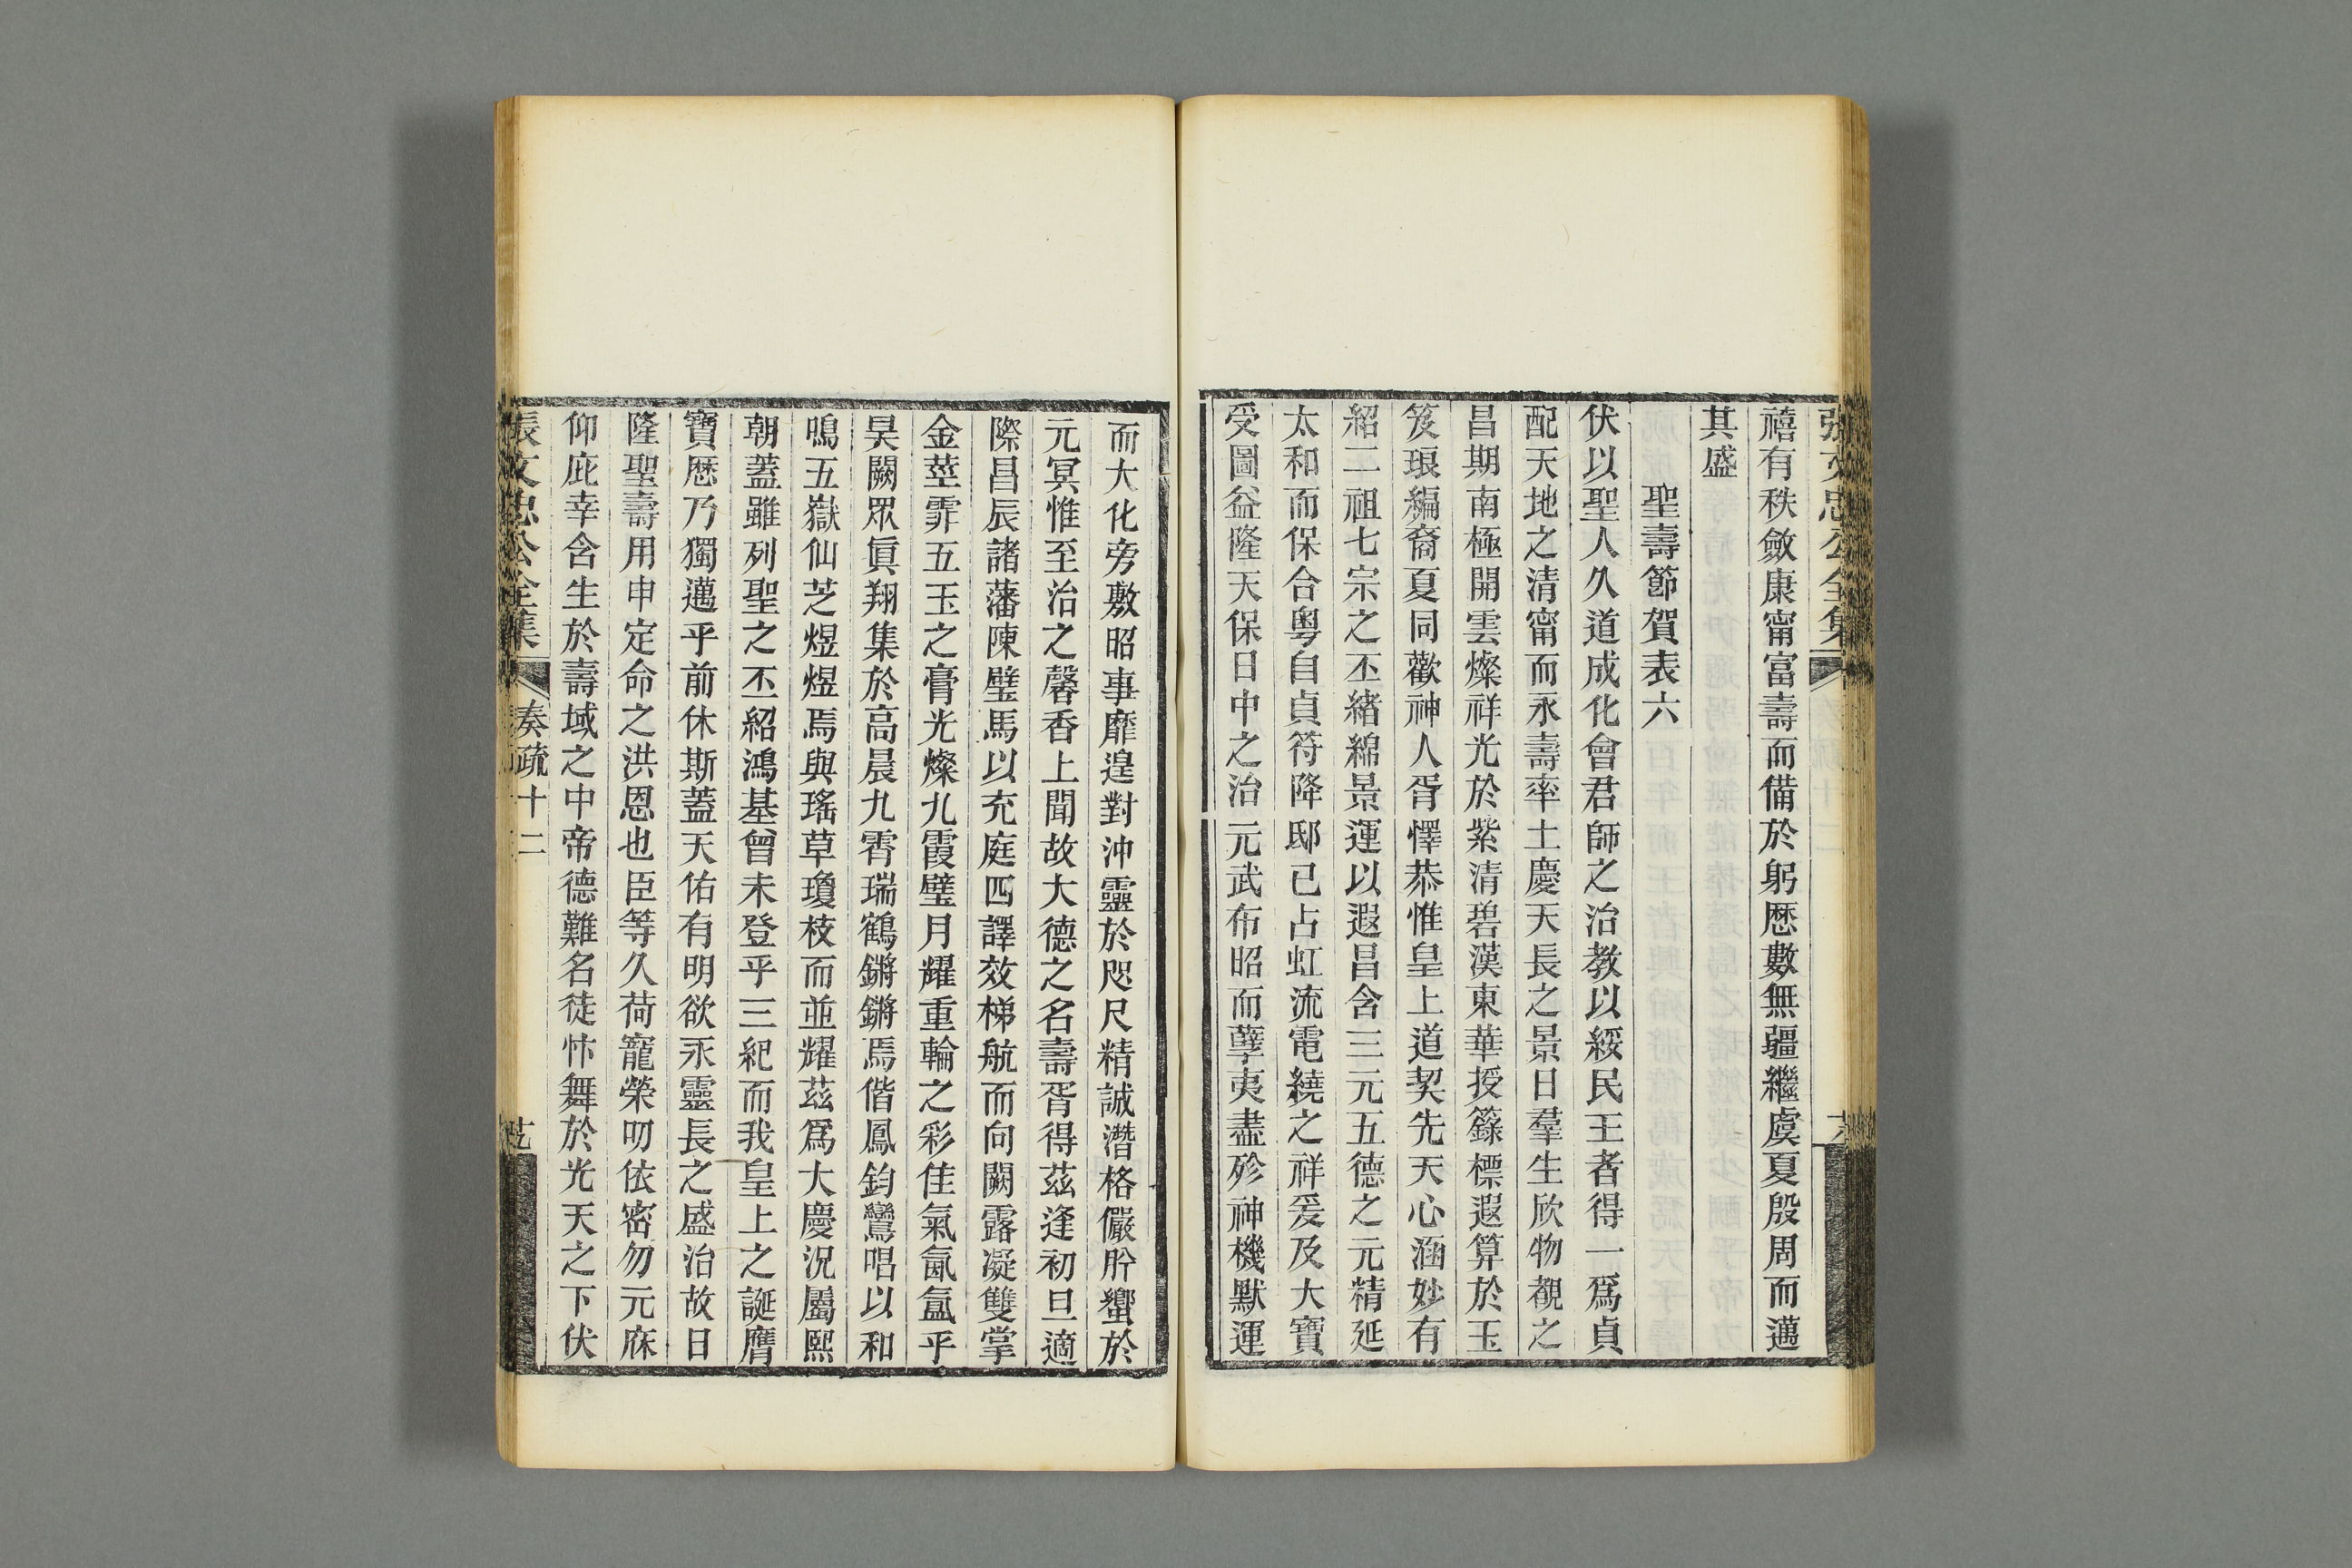 張文忠公全集
禧有秩斂康甯富壽而備於躬厯數無疆繼虞夏殷周而邁
其盛
聖壽節賀表六
伏以聖人久道成化會君師之治教以綏民王者得一爲貞
配天地之清甯而永壽率土慶天長之景日羣生欣物覩之
昌期南極開雲燦祥光於紫清碧漢東華授籙標遐算於玉
笈琅編裔夏同歡神人胥懌恭惟皇上道契先天心涵妙有
紹二祖七宗之丕緒綿景運以遐昌含三元五德之元精延
太和而保合粵自貞符降邸己占虹流電繞之祥爰及大寶
受圖益隆天保日中之治元武布昭而孽夷盡殄神機默運
而大化旁敷昭事靡遑對沖靈於咫尺精誠潛格儼肸蠁於
元冥惟至治之馨香上聞故大德之名壽胥得茲逢初旦適
際昌辰諸藩陳璧馬以充庭四譯效梯航而向闕露凝雙掌
金莖霏五玉之膏光燦九霞璧月耀重輪之彩佳氣氤氳乎
昊闕眾眞翔集於高晨九霄瑞鶴鏘鏘焉偕鳳鈞鸞唱以和
鳴五嶽仙芝煜煜焉與瑤草瓊枝而並耀茲爲大慶況屬熙
朝蓋雖列聖之丕紹鴻基曾未登乎三紀而我皇上之誕膺
寶厯乃獨邁乎前休斯蓋天佑有明欲永靈長之盛治故日
隆聖壽用申定命之洪恩也臣等久荷寵榮叨依密勿元庥
仰庇幸含生於壽域之中帝德難名徒忭舞於光天之下伏
張文忠公全集 奏疏十二